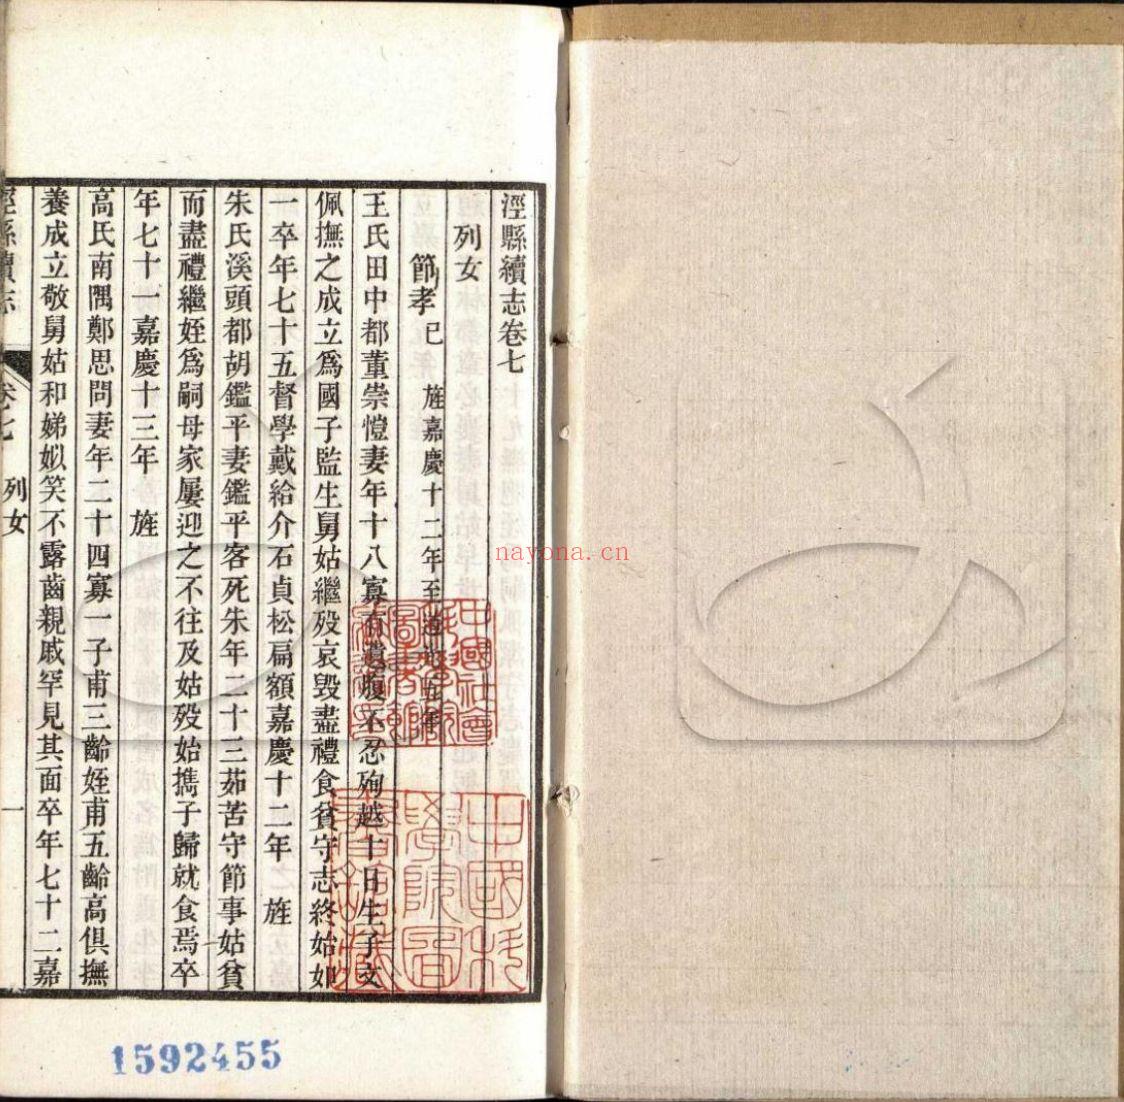 涇縣續志卷七
列女
節孝已 旌嘉慶十二年至道光五年
王氏田中都董崇愷妻年十八寡有遺腹不忍殉越十日生子文
佩撫之成立爲國子監生舅姑繼殁哀毀盡禮食貧守志終始如
一卒年七十五督學戴給介石貞松扁額嘉慶十二年 旌
朱氏溪頭都胡鑑平妻鑑平客死朱年二十三茹苦守節事姑貧
而盡禮繼姪爲嗣母家屢迎之不往及姑殁始携子歸就食焉卒
年七十一嘉慶十三年 旌
高氏南隅鄭思問妻年二十四寡一子甫三齡姪甫五齡高俱撫
養成立敬舅姑和娣姒笑不露齒親戚罕見其面卒年七十二嘉
涇縣續志 卷七 列女 一
1592455
nayona.cn